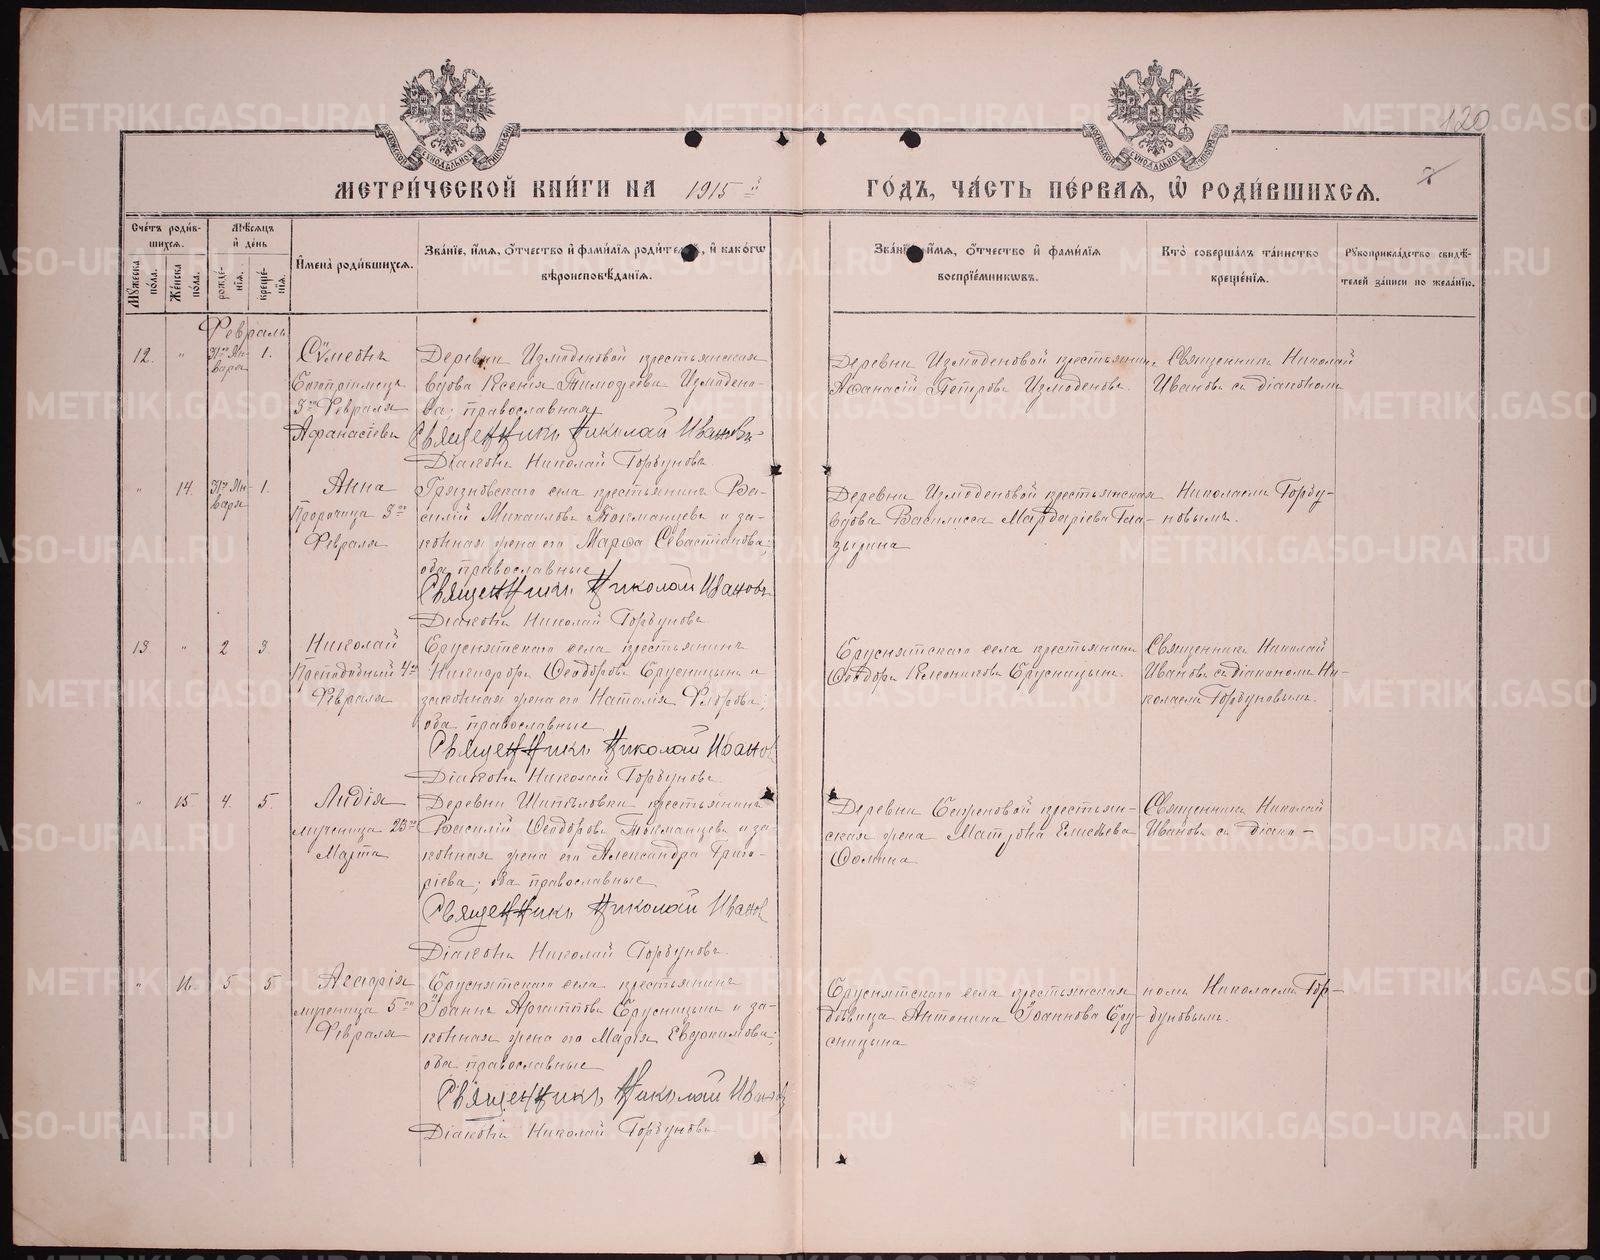 120
МОСКОВСКОЙ СѴНОДАЛЬНОЙ ТИПОГРАФІИ
МОСКОВСКОЙ СѴНОДАЛЬНОЙ ТИПОГРАФІИ
МЕТРИ́ЧЕСКОЙ КНИ́ГИ НА 1915 й
ГО́ДЪ, ЧА́СТЬ ПЕ́РВАЯ, Ѽ РОДИ́ВШИХСЯ. 7
Сче́тъ роди́в-
шихся.
Мѣ́сяцъ
и҆ де́нь
Му́жеска по́ла.
Же́нска по́ла.
рожде́-нїѧ.
креще́-нїѧ.
И҆мена̀ роди́вшихся.
Зва́нїе, и҆́мя, ѻ҆́тчество и҆ фами́лїя роди́телей, и҆ како́гѡ
вѣроисповѣ́данїя.
Зва́нїе, и҆́мя, ѻ҆́тчество и҆ фами́лїя
воспрїе́мникѡвъ.
Кто̀ соверша́лъ та́инство
креще́нїя.
Рꙋкоприкла́дство свидѣ́-
телей за́писи по жела́нїю.
Февраль
12. " 31го Ян-
варя 1. Сѵмеонъ
Богопріимецъ
3го Февраля
Афанасіевъ
Деревни Измоденовой крестьянская
вдова Ксенія Тимоѳеева Измодено-
ва; православная
Священникъ Николай Ивановъ
Діаконъ Николай Горбуновъ.
Деревни Измоденовой крестьянинъ
Аѳанасій Петровъ Измоденовъ.
Священникъ Николай
Ивановъ съ діакономъ
" 14. 31го Ян-
варя 1. Анна
Пророчица 3го
Февраля
Грязновскаго села крестьянинъ Ва-
силій Михаиловъ Токманцевъ и за-
конная жена его Марѳа Севастіанова;
оба православные
Священникъ Николай Ивановъ
Діаконъ Николай Горбуновъ
Деревни Измоденовой крестьянская
вдова Василисса Мардаріева Гла-
дызина
Николаемъ Горбу-
новымъ.
13 " 2 3. Николай
Преподобный 4го
Февраля
Бруснятскаго села крестьянинъ
Никифоръ Ѳеодоровъ Брусницынъ и
законная жена его Наталія Флорова;
оба православные
Священникъ Николай Ивановъ
Діаконъ Николай Горбуновъ.
Бруснятскаго села крестьянинъ
Ѳеодоръ Брусницынъ.
Священникъ Николай
Ивановъ съ діакономъ Ни-
колаемъ Горбуновымъ.
" 15 4. 5. Лидія
мученица 23го
Марта
Деревни Шипѣловки крестьянинъ
Василій Ѳеодоровъ Токманцевъ и за-
конная жена его Александра Григо-
ріева; оба православные
Священникъ Николай Ивановъ
Діаконъ Николай Горбуновъ.
Деревни крестьян-
ская жена Матрона Елисѣева
Ѳомина
Священникъ Николай
Ивановъ съ діако-
" 16. 5 5. Агаѳія
мученица 5го
Февраля
Бруснятскаго села крестьянинъ
Іоаннъ Брусницынъ и за-
конная жена его Марія Евдокимова;
оба православные
Священникъ Николай Ивановъ
Діаконъ Николай Горбуновъ
Бруснятскаго села крестьянская
дѣвица Антонина Іоаннова Бру-
сницына
номъ Николаемъ Гор-
буновымъ.